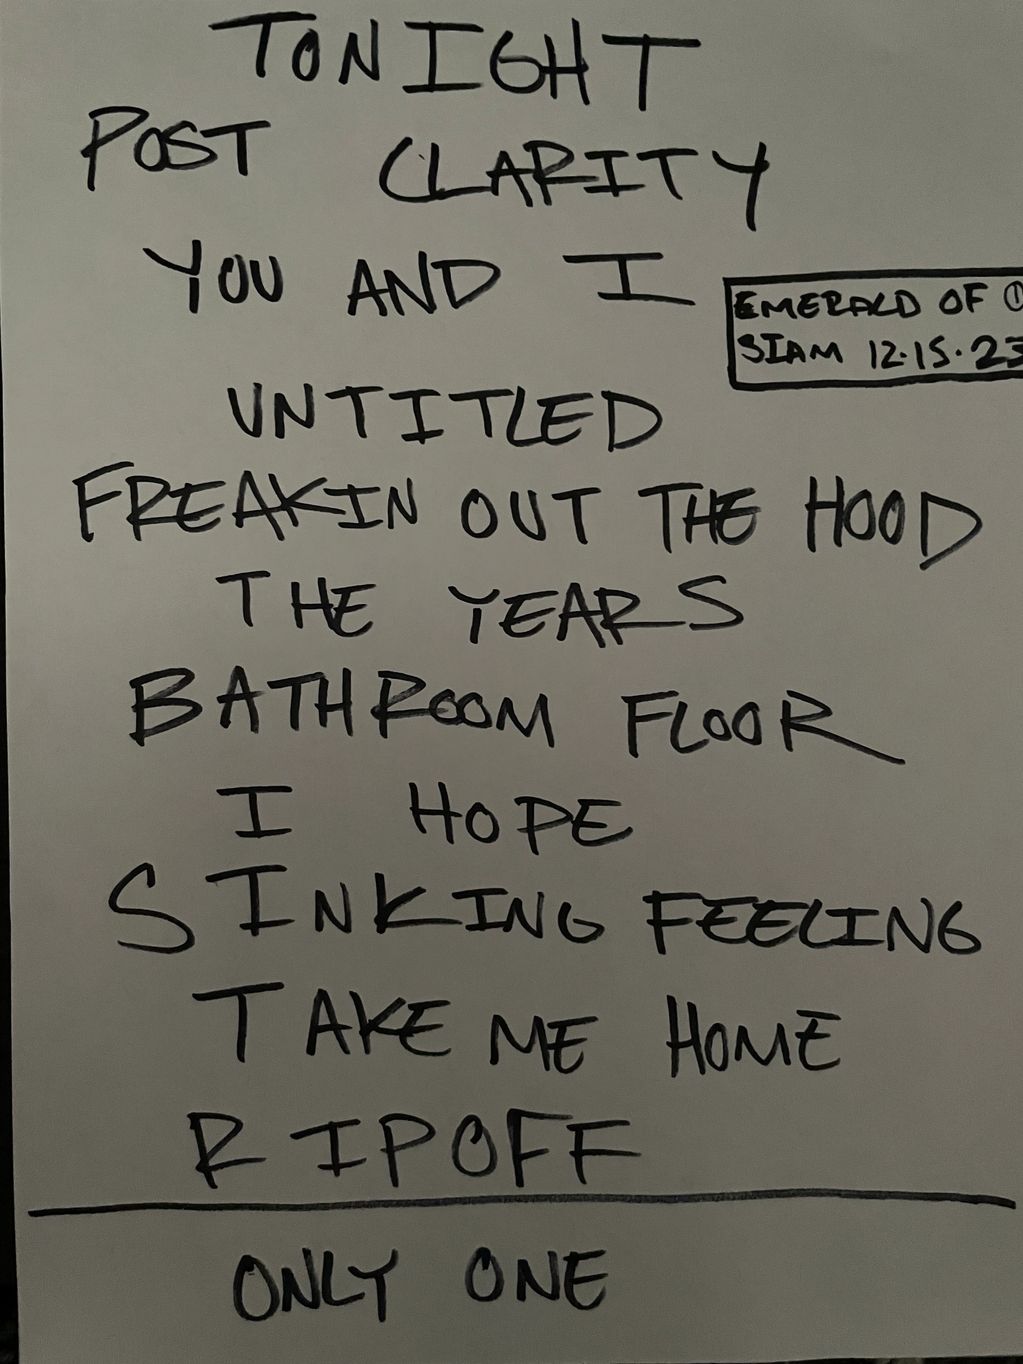 TONIGHT
POST CLARITY
YOU AND I
EMERALD OF ①
SIAM 12.15.23
UNTITLED
FREAKIN OUT THE HOOD
THE YEARS
BATHROOM FLOOR
I HOPE
SINKING FEELING
TAKE ME HOME
RIPOFF
ONLY ONE